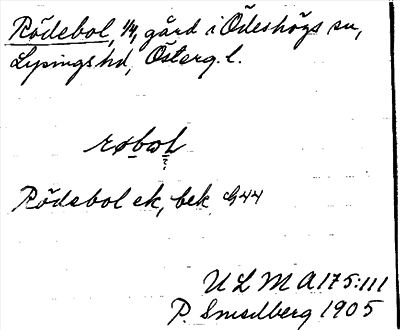 Rödebol, 1/4, gård i Ödeshögs sn,
Lysings hd, Österg. l.
røbol
?
Rödebol ek, bek G44
ULMA 175:111
P. Smedberg 1905